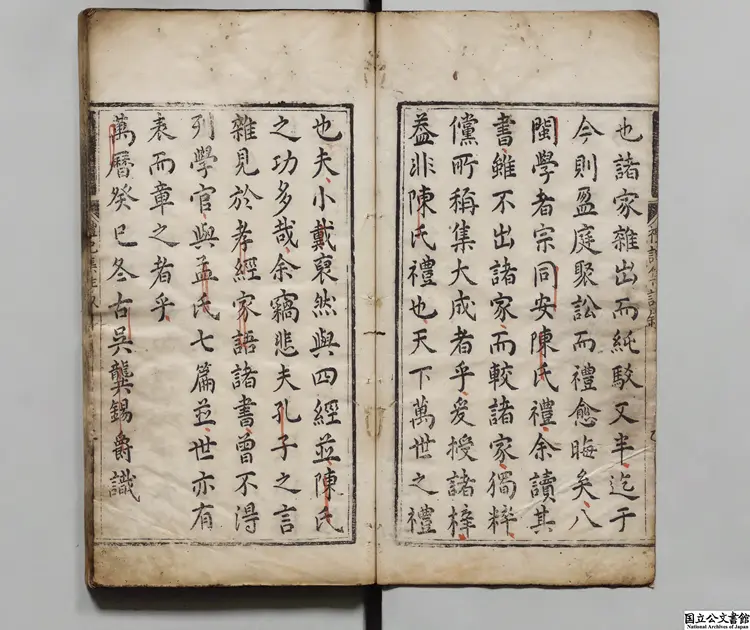 也諸家雜出而純駁又半迄于
今則盈庭聚訟而禮愈晦矣八
閩學者宗同安陳氏禮余讀其
書雖不出諸家而較諸家獨粹
儻所稱集大成者乎爰授諸梓
葢非陳氏禮也天下萬世之禮
也夫小戴裒然與四經並陳氏
之功多哉余竊悲夫孔子之言
雜見於孝經家語諸書曾不得
列學官與孟氏七篇並世亦有
表而章之者乎
萬曆癸巳冬古吳龔錫爵識
国立公文書館
National Archives of Japan